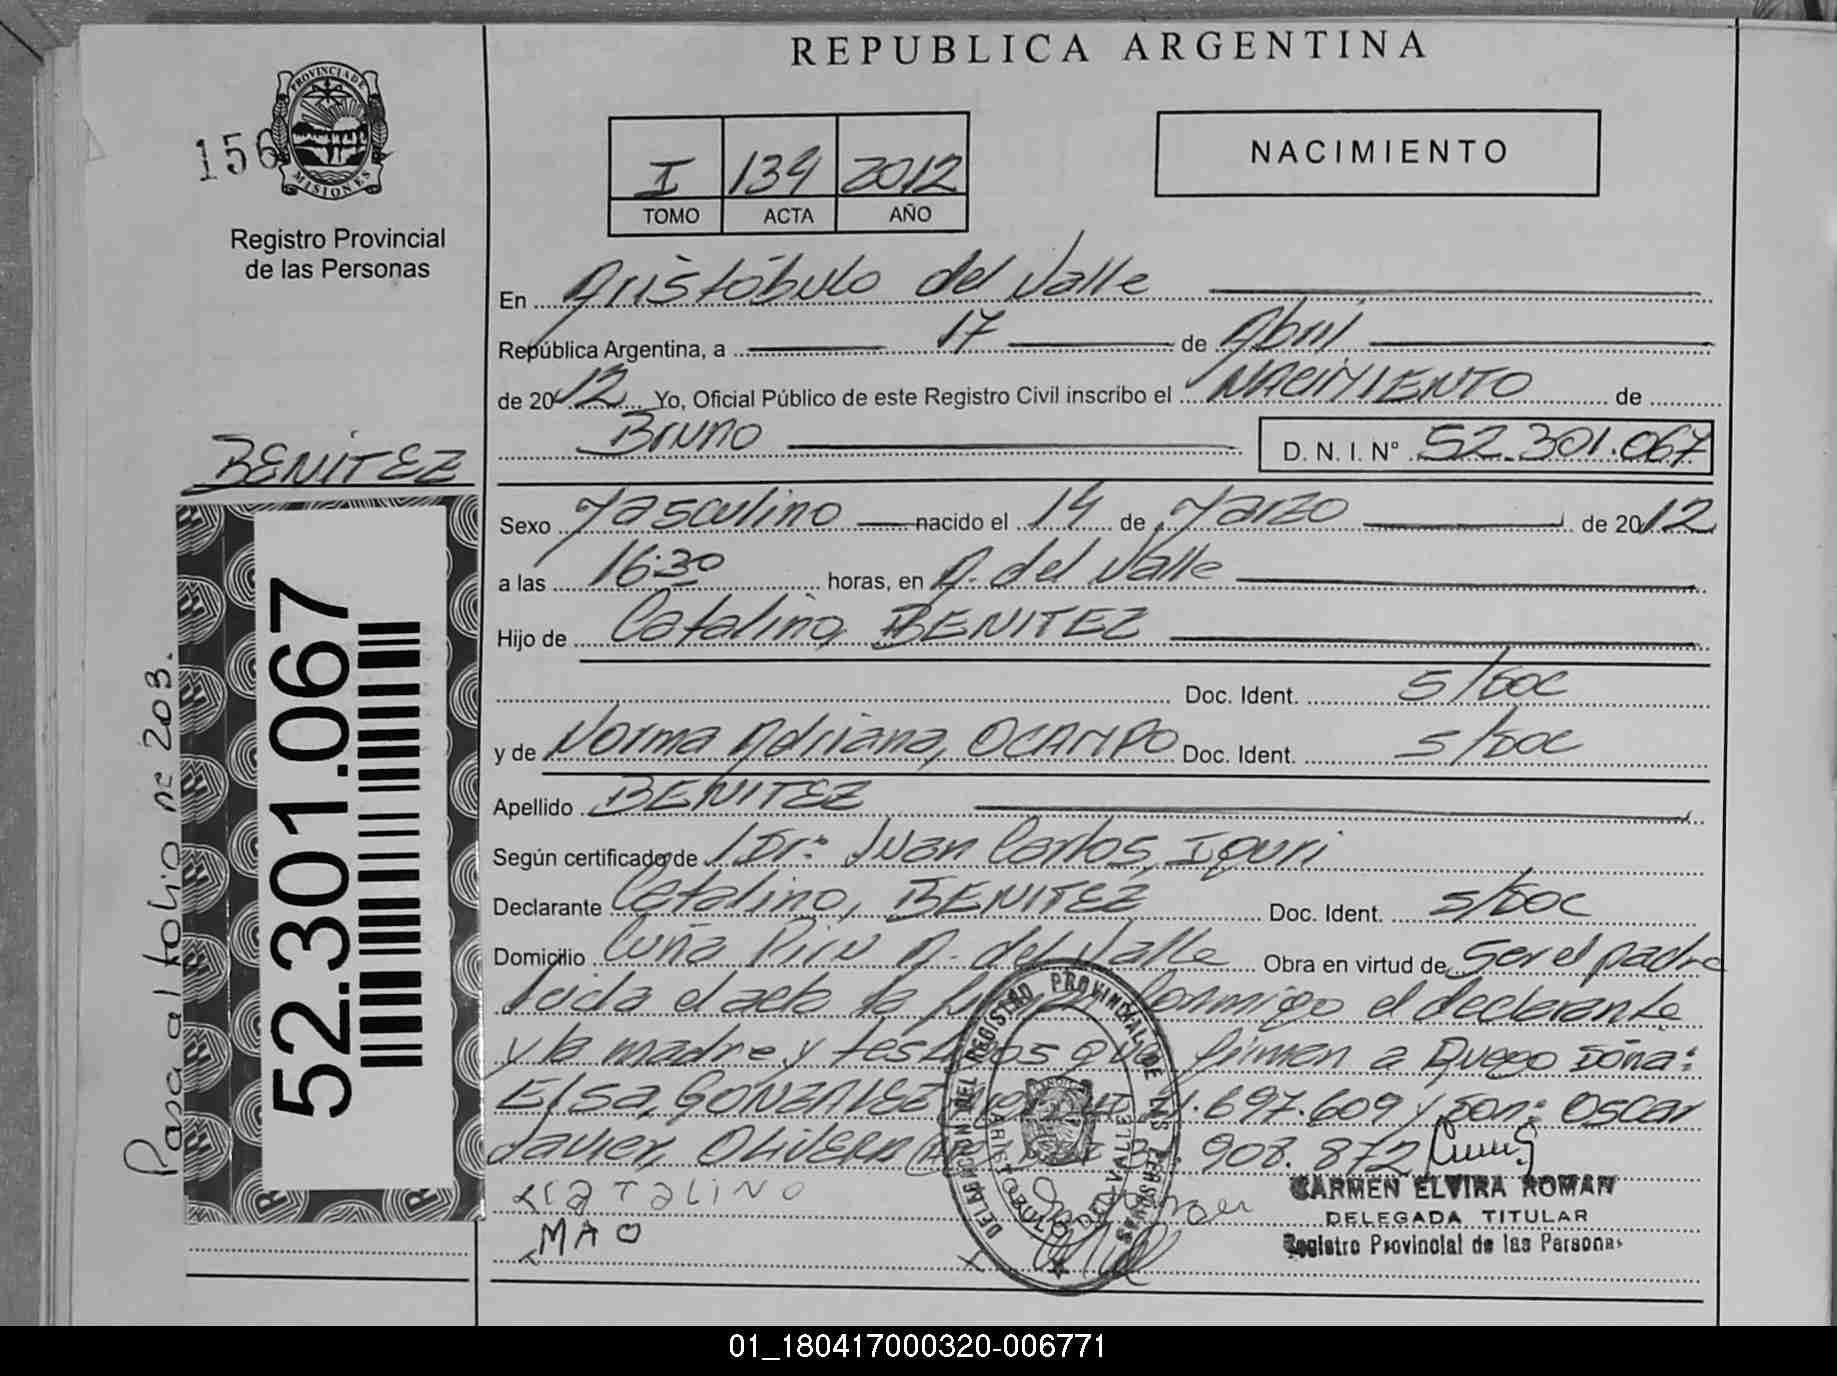 REPUBLICA ARGENTINA
PROVINCIA DE MISIONES
156
Registro Provincial
de las Personas
I 134 2012
TOMO ACTA AÑO
NACIMIENTO
En Aristóbulo del Valle
República Argentina, a 17 de Abril
de 2012 Yo, Oficial Público de este Registro Civil inscribo el NACIMIENTO de
Bruno D. N. I. Nº 52.301.067
BENITEZ
Sexo Masculino nacido el 14 de Marzo de 2012
a las 16:30 horas, en A. del Valle
Hijo de Catalino, BENITEZ
Doc. Ident. S/Doc
y de Norma Adriana, OCAMPO Doc. Ident. S/Doc
Apellido BENITEZ
Según certificado de Dr: Juan Carlos
Declarante Catalino, BENITEZ Doc. Ident. S/Doc
Domicilio Cuña Pirú A. del Valle Obra en virtud de Ser el padre
Leida el acta la conmigo el declarante
y la madre y testigos que firman a Ruego Doña:
Elsa, GONZALEZ .697.609 y Don: Oscar
Javier, OLIVERA 908.872
CATALINO
MAO
CARMEN ELVIRA ROMAN
DELEGADA TITULAR
Registro Provincial de las Personas
DELEGACION DEL REGISTRO PROVINCIAL DE LAS PERSONAS
ARISTOBULO DEL VALLE
52.301.067
Pasa al folio nº 203.
01_180417000320-006771